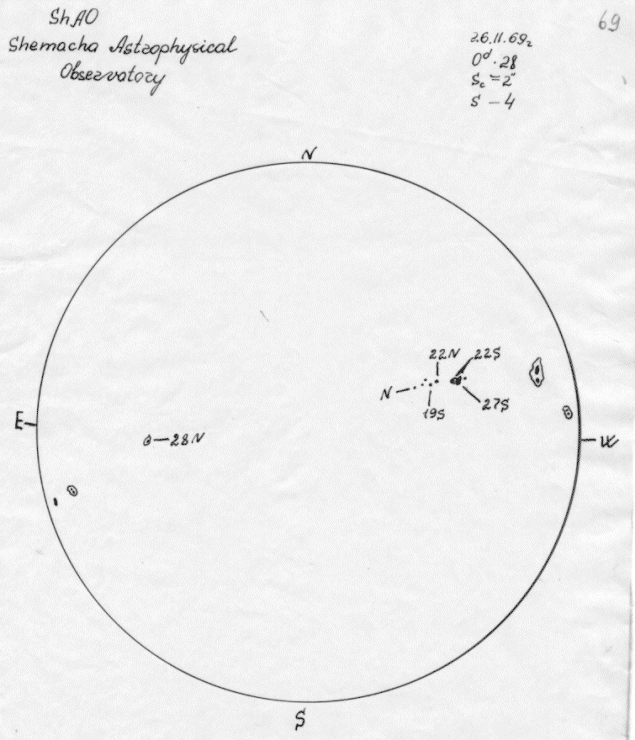 ShAO
Shemacha Astrophysical
Observatory
69
26.11.69г
0d.28
Sc = 2"
S - 4
N
22N
22S
N
19S
27S
E
28N
W
S